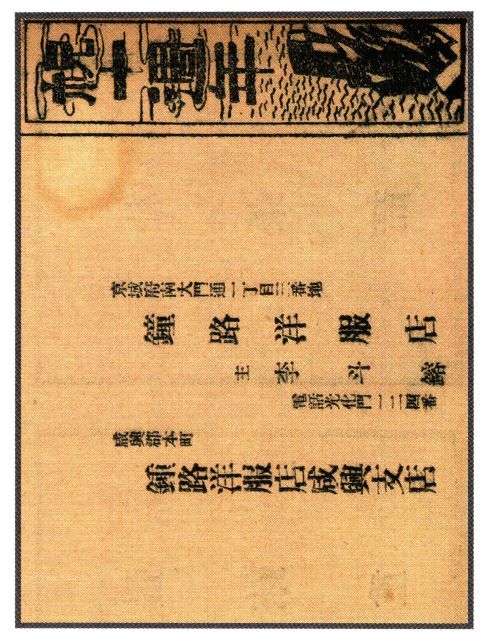 京城府南大門通一丁目三番地
鐘路洋服店
主 李斗鎔
電話光化門一一二四番
咸興郡本町
鐘路洋服店咸興支店